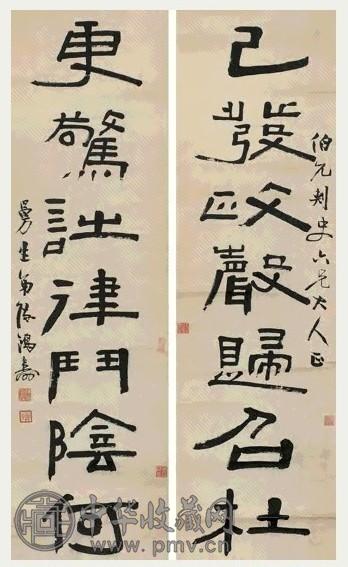 伯允刺史六兄大人正
已發政聲歸召杜
更驚詩律鬥陰何
曼生弟陳鴻壽
中华收藏网
www.pmv.cn